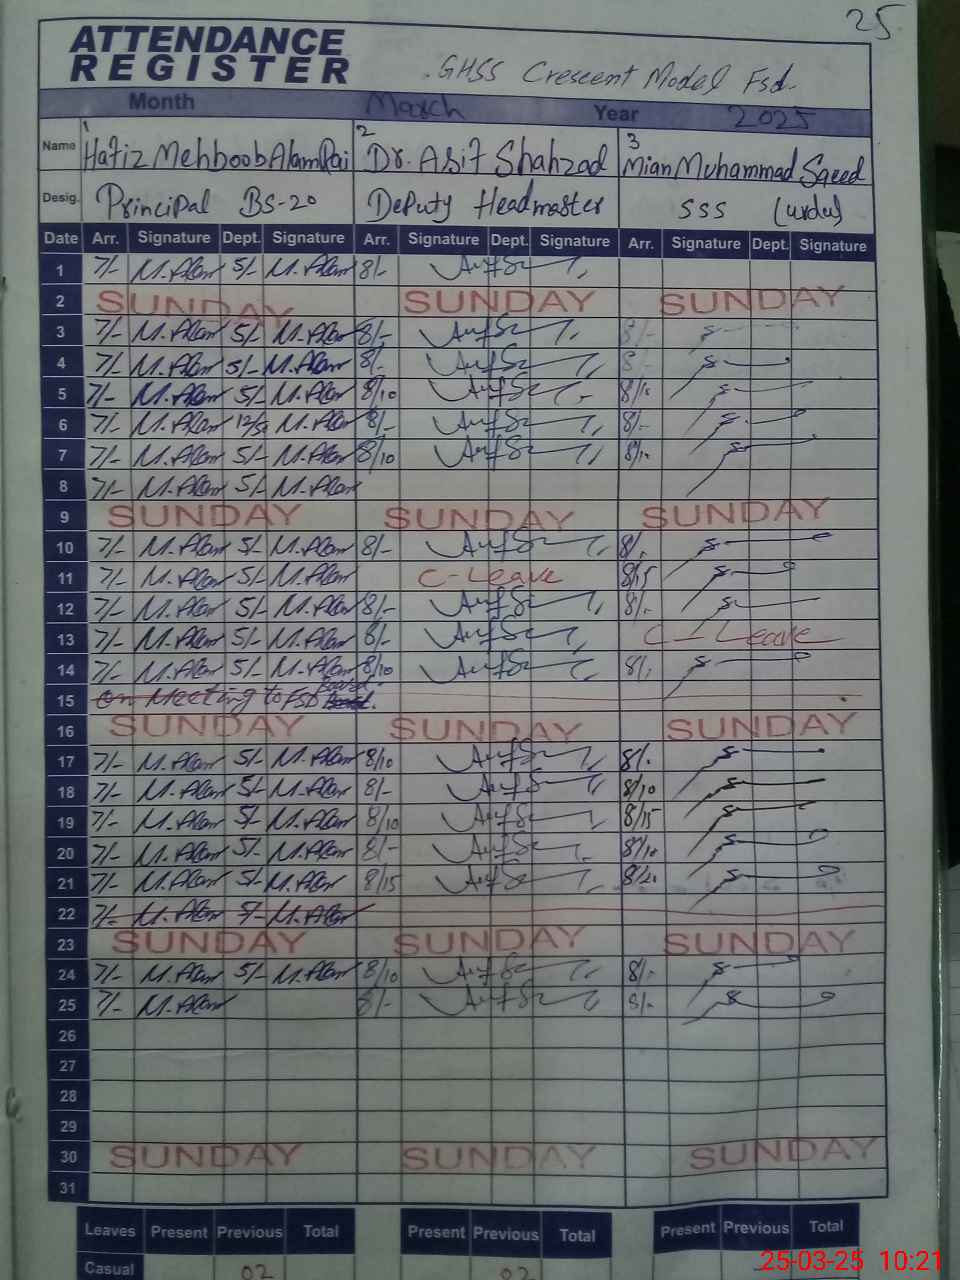 25.
ATTENDANCE
REGISTER
GHSS Crescent Model Fsd.
Month March Year 2025
1 2 3
Name Hafiz Mehboob Alam Rai Dr. Asif Shahzad Mian Muhammad Saeed
Desig. Principal BS-20 Deputy Headmaster SSS (urdu)
Date Arr. Signature Dept. Signature Arr. Signature Dept. Signature Arr. Signature Dept. Signature
1 7/- M.Alam 5/- M.Alam 8/-
2 SUNDAY SUNDAY SUNDAY
3 7/- M.Alam 5/- M.Alam 8/- 8/-
4 7/- M.Alam 5/- M.Alam 8/- 8/-
5 7/- M.Alam 5/- M.Alam 8/10
6 7/- M.Alam M.Alam 8/- 8/-
7 7/- M.Alam 5/- M.Alam 8/10 8/10
8 7/- M.Alam 5/- M.Alam
9 SUNDAY SUNDAY SUNDAY
10 7/- M.Alam 5/- M.Alam 8/- 8/.
11 7/- M.Alam 5/- M.Alam C-Leave 8/15
12 7/- M.Alam 5/- M.Alam 8/- 8/.
13 7/- M.Alam 5/- M.Alam 8/- C-Leave
14 7/- M.Alam 5/- M.Alam 8/10 8/.
15 On Meeting to FSD Board.
16 SUNDAY SUNDAY SUNDAY
17 7/- M.Alam 5/- M.Alam 8/10 8/.
18 7/- M.Alam 5/- M.Alam 8/- 8/10
19 7/- M.Alam 5/- M.Alam 8/10 8/15
20 7/- M.Alam 5/- M.Alam 8/- 8/10
21 7/- M.Alam 5/- M.Alam 8/15
22 7/- M.Alam 5/- M.Alam
23 SUNDAY SUNDAY SUNDAY
24 7/- M.Alam 5/- M.Alam 8/10 8/.
25 7/- M.Alam 8/- 8/-
26
27
28
29
30 SUNDAY SUNDAY SUNDAY
31
Leaves Present Previous Total Present Previous Total Present Previous Total
Casual 02 02
25-03-25 10:21